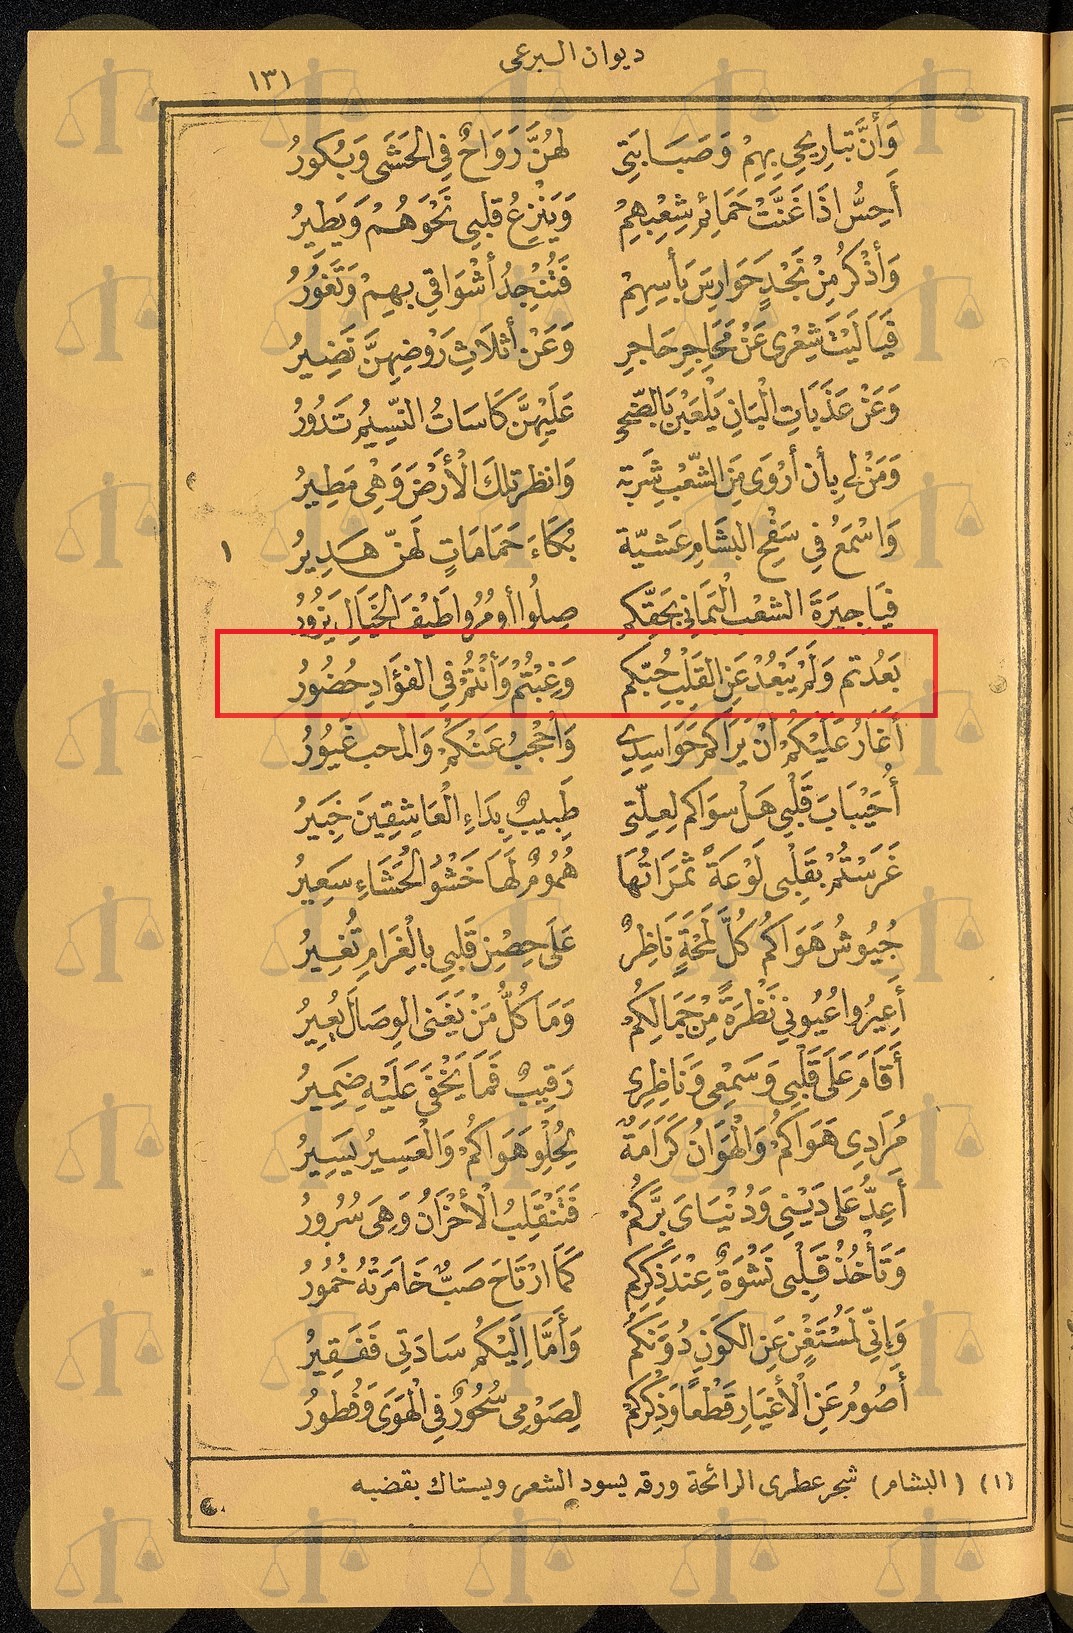 ديوان البرعى
١٣١
وَأَنَّ تَبارِيحِي بِهِمْ وَصَبَابَتِى لَهُنَّ رَوَاحٌ فِي الحَشَى وَبُكورُ
أَحِسُّ اذَا غَنَّتْ حَمَائِمُ شِعْبِهِمْ وَيَنْزِعُ قَلبِي نَحْوَهُمْ وَيَطِيرُ
وَأَذْكُرُ مِنْ نَجْدٍ حَوَارِسَ بَأسِهِمْ فَتُنْجِدُ أشْوَاقِي بِهِمْ وَتَغوُرُ
فَيَا لَيْتَ شِعْرى عَنْ مَحَاجِرِ حَاجِرِ وَعَنْ أثَلَاثِ رَوْضِهِنَّ نَضِيرُ
وَعَنْ عَذَبَاتِ الْبَانِ يَلْعَبْنَ بَالضّحى عَلَيْهِنَّ كَاسَاتُ النّسِيْمِ تَدُورُ
وَمَنْ لِي بِأن أرْوَى مِنَ الشّعْبِ شَربة وَانظر تِلكَ الْأرْضَ وَهْىَ مَطِيرُ
وَاسْمَعُ فِي سَفْحِ البشَامِ عَشيّة بُكَاءَ حَمَامَاتٍ لَهنّ هَدِيرُ ١
فَيَا جِيرَةَ الشعْب الْيَمَانِي بَحَقّكم صِلُوا أومُرُوا طَيْفَ الخَيَالِ يَزُورُ
بَعُدتم وَلَمْ يَبْعُدْ عَنِ القَلْبِ حُبّكم وَغِبْتُمْ وَأنْتُمْ فِي الفؤَادِ حُضُورُ
أَغَارُ عَلَيْكُمْ أنْ يَرَاكم حَوَاسِدِي وَأحْجبُ عَنْكُمْ وَالمحب غَيُورُ
أُحَيْبَابَ قَلْبِي هَلْ سوَاكم لِعِلّتي طَبِيبٌ بِدَاءِ الْعَاشِقِينَ خَبِيرُ
غَرَسْتُمْ بَقَلْبِى لَوْعَةً ثمَرَاتُهَا هُمُومٌ لَهَا حَشْوُ الحُشَاءِ سَعِيرُ
جُيُوشُ هَوَاكمُ كُلَّ لَمْحَةِ نَاظِرٌ عَلَى حِصْنِ قَلبِي بِالْغَرَامِ تُغِيرُ
أَعِيرُوا عُيُونِي نَظْرَةً مِنْ جَمَالِكُمْ وَمَا كُلُّ مَنْ يَغنى الوِصَالَ يُعِيرُ
أَقَامَ عَلَى قَلْبِي وَسَمْعِى وَنَاظِرِى رَقِيبٌ فَمَا يَخْفَى عَلَيْهِ ضَمِيرُ
مُرَادِى هَوَاكمْ وَالْهَوَانُ كَرَامَةٌ لحُلْوِ هَوَاكُمْ وَالْعَسِيرُ يَسَيرُ
أَعِدُّ عَلى دَيْنِي وَدُنْيَاىَ بَرَّكُمْ فَتَنْقَلِبُ الْأحْزَانُ وَهِىَ سُرُورُ
وَتَأخُذُ قَلْبِى نَشْوَةٌ عِنْدَ ذِكرِكم كَمَا ارْتَاحَ صَبٌّ خَامَرَتْهُ خُمُورُ
وَإِنّي لَمُسْتَغْنٍ عَنِ الكَوْنِ دُونَكُمْ وَأَمَّا اِلَيْكُم سَادَتِي فَفَقِيرُ
أَصُومُ عَنِ الْأغْيَارِ قَطْعًا وَذِكْرُكُمْ لِصَوْمِى سُحُورٌ فِي الْهَوَى وَفُطورُ
(١) (البشام) شجر عطرى الرائحة ورقه يسود الشعر ويستاك بقضبه